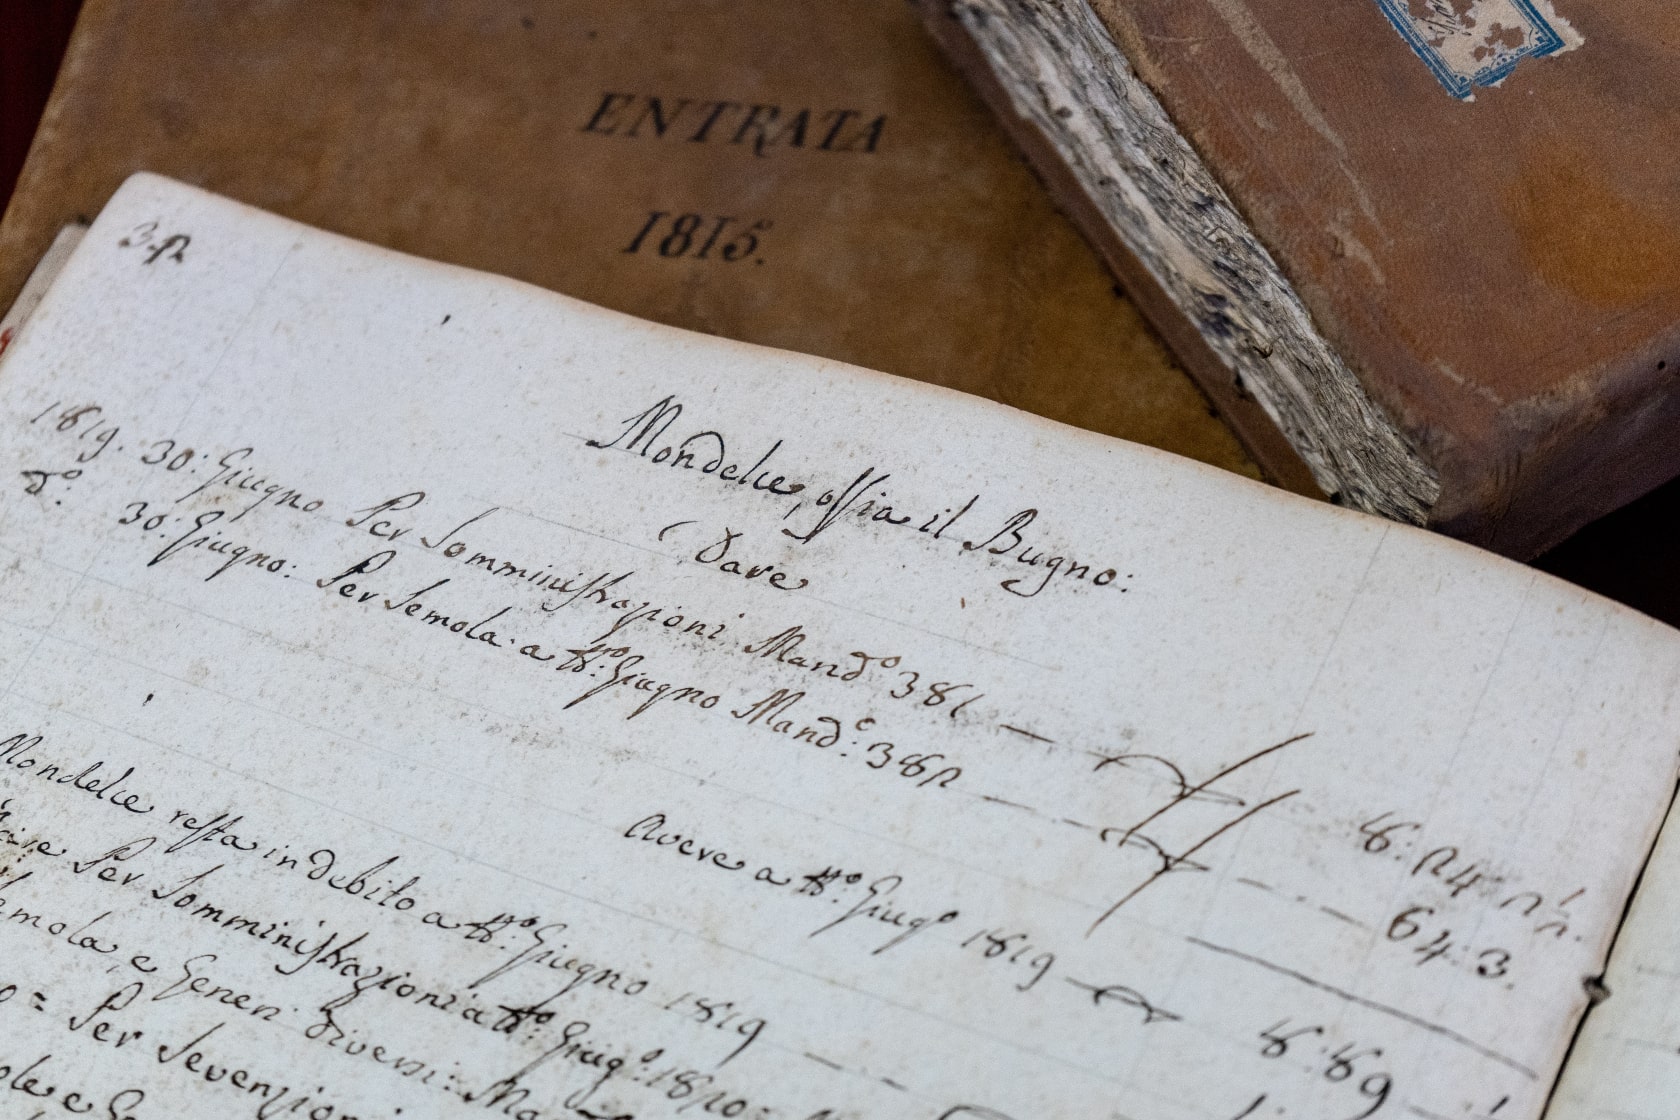 ENTRATA
1815.
32
Mondelce, ossia il Bugno:
Dare
1819. 30: Giugno Per Somministrazioni Mand:º 381 — 8: 24: 2
dº: 30: Giugno: Per Semola a tt:º Giugno Mand:º 382 — 64: 3.
Avere a tt:º Giugº 1819 — 8: 89
Mondelce resta in debito a tt:º Giugno 1819 —
Per Somministrazioni a tt:º Giugº: 1820:
Semola, e Generi diversi:
= Per Sevenzioni